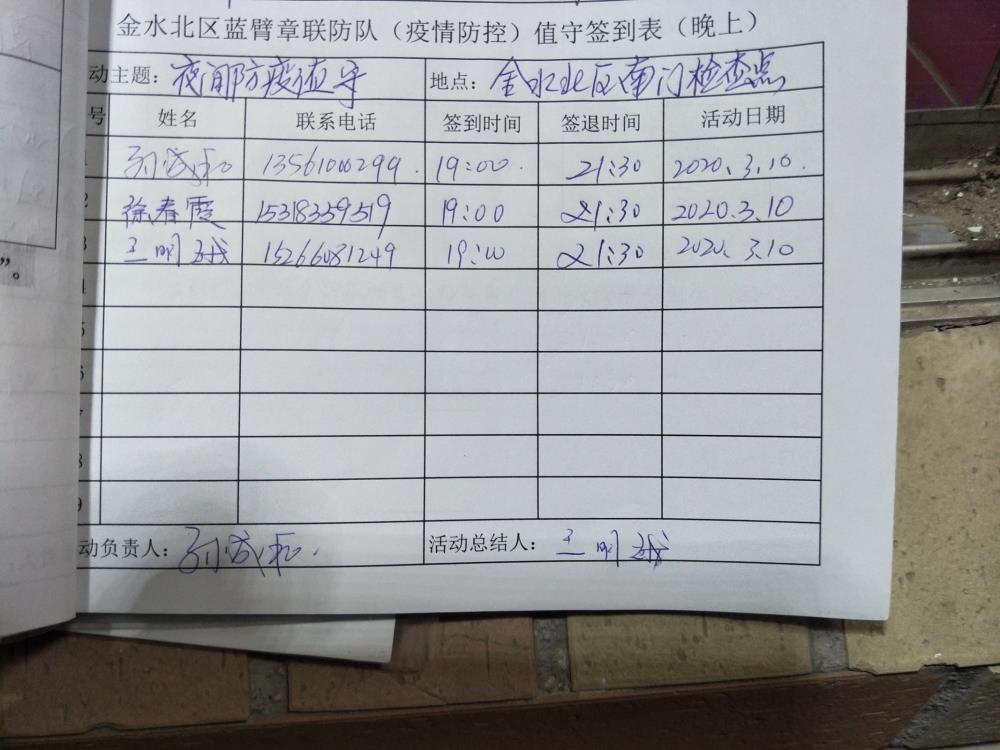 金水北区蓝臂章联防队（疫情防控）值守签到表（晚上）
动主题：夜间防疫值守 地点：金水北区南门检查点
号 姓名 联系电话 签到时间 签退时间 活动日期
1 孙成和 13561000299. 19:00. 21:30 2020.3.10.
2 徐春霞 15318359519 19:00 21:30 2020.3.10
3 王明 15266081249 19:00 21:30 2020.3.10
4
5
6
7
8
9
动负责人：孙成和. 活动总结人：王明
”。